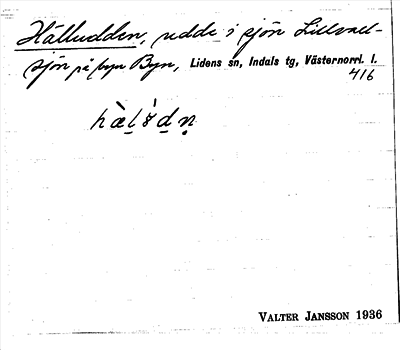 Hälludden, udde i sjön Lillvall-
sjön på byn Byn, Lidens sn, Indals tg, Västernorrl. l.
416
Valter Jansson 1936